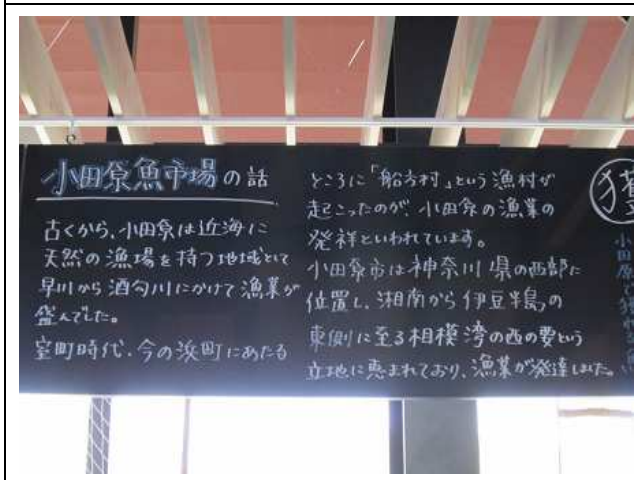 小田原魚市場の話
古くから、小田原は近海に
天然の漁場を持つ地域として
早川から酒匂川にかけて漁業が
盛んでした。
室町時代、今の浜町にあたる
ところに「船方村」という漁村が
起こったのが、小田原の漁業の
発祥といわれています。
小田原市は神奈川県の西部に
位置し、湘南から伊豆半島の
東側に至る相模湾の西の要という
立地に恵まれており、漁業が発達しました。
小田原で